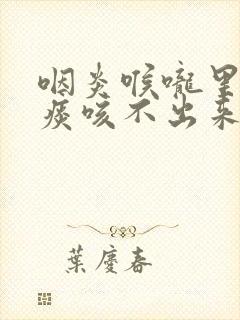 咽炎喉嚨里
痰咳不出来
葉慶春